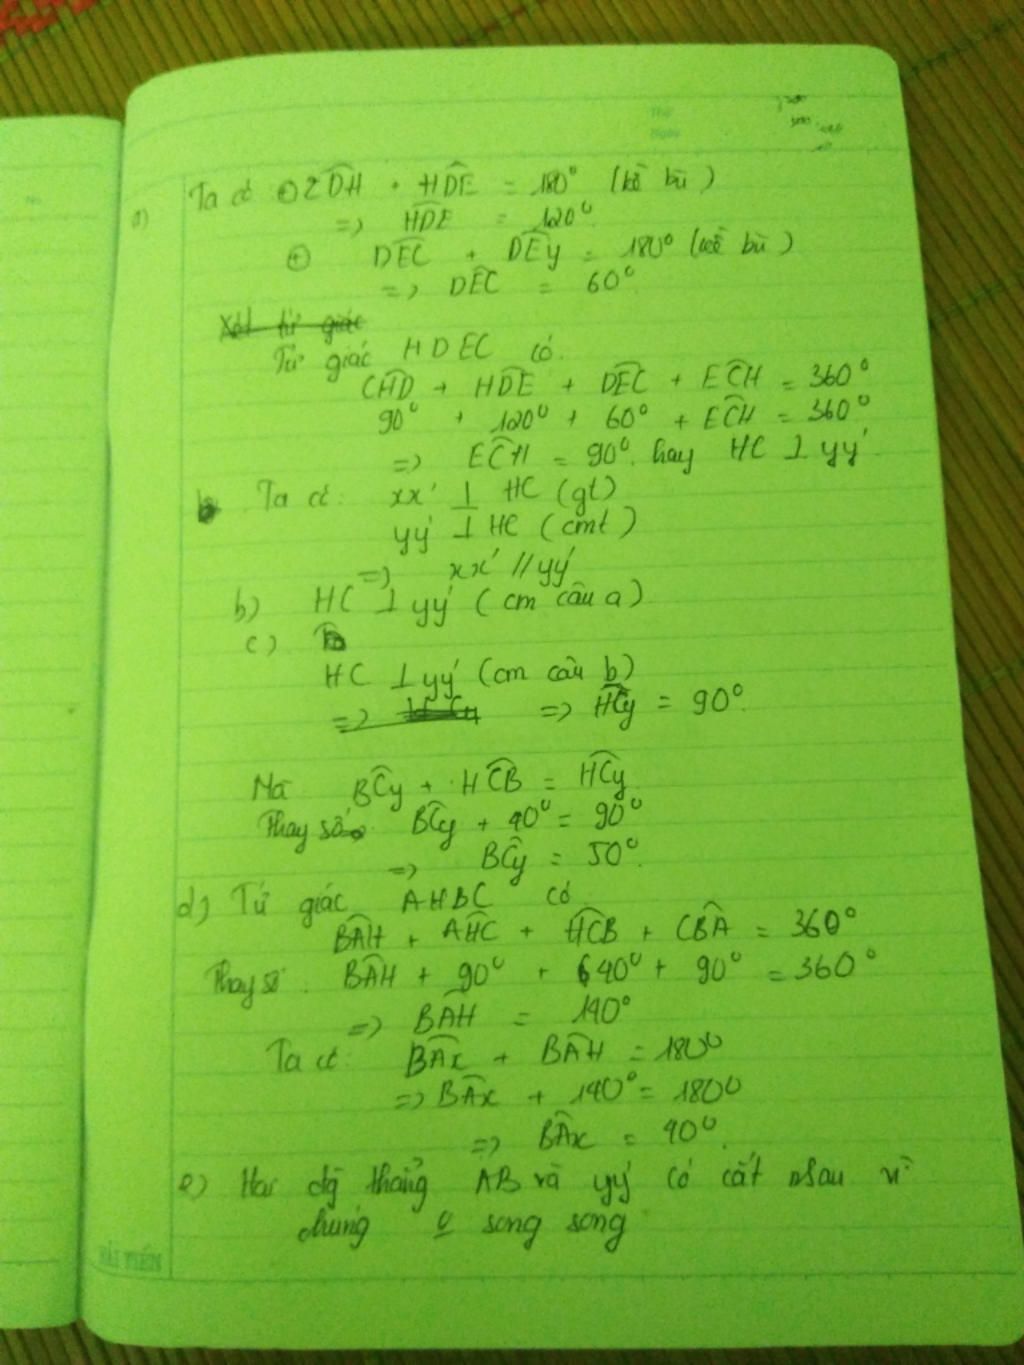 Thứ
Ngày
No.
a) Ta có ⊕ ZDH + HDE = 180° (kề bù)
=> HDE = 120°
⊕ DEC + DEy = 180° (kề bù)
=> DEC = 60°
Xét tứ giác
Tứ giác HDEC có
CHD + HDE + DEC + ECH = 360°
90° + 120° + 60° + ECH = 360°
=> ECH = 90° hay HC ⊥ yy'
Ta có: xx' ⊥ HC (gt)
yy' ⊥ HC (cmt)
=> xx' // yy'
b) HC ⊥ yy' (cm câu a)
c)
HC ⊥ yy' (cm câu b)
=> => HCy = 90°
Mà BCy + HCB = HCy
Thay số BCy + 40° = 90°
=> BCy = 50°
d) Tứ giác AHBC có
BAH + AHC + HCB + CBA = 360°
Thay số BAH + 90° + 40° + 90° = 360°
=> BAH = 140°
Ta có: BAx + BAH = 180°
=> BAx + 140° = 180°
=> BAx = 40°
e) Hai đg thẳng AB và yy' có cắt nhau vì
chúng song song
HẢI TIẾN